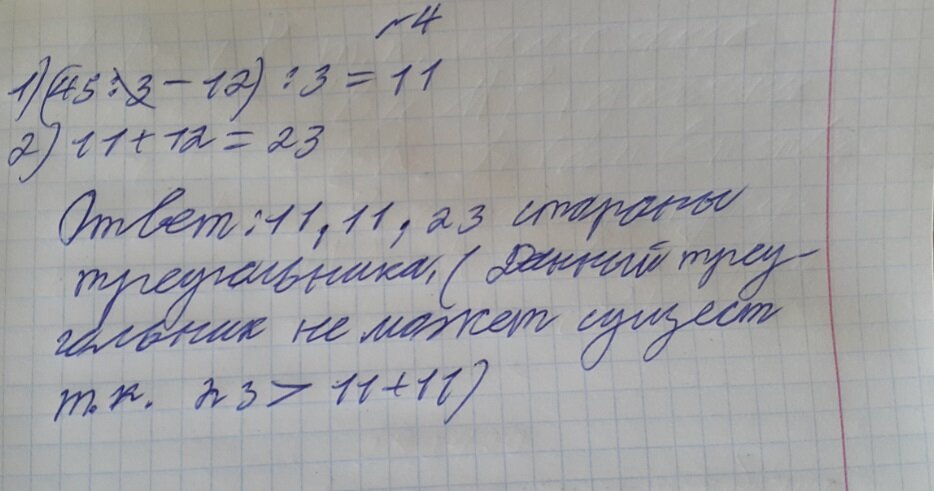 №4
1) (45:3-12):3=11
2) 11+12=23
Ответ: 11, 11, 23 стараны
треугальника. (Данный треу-
гальник не мажет сущест
т.к. 23 > 11+11)